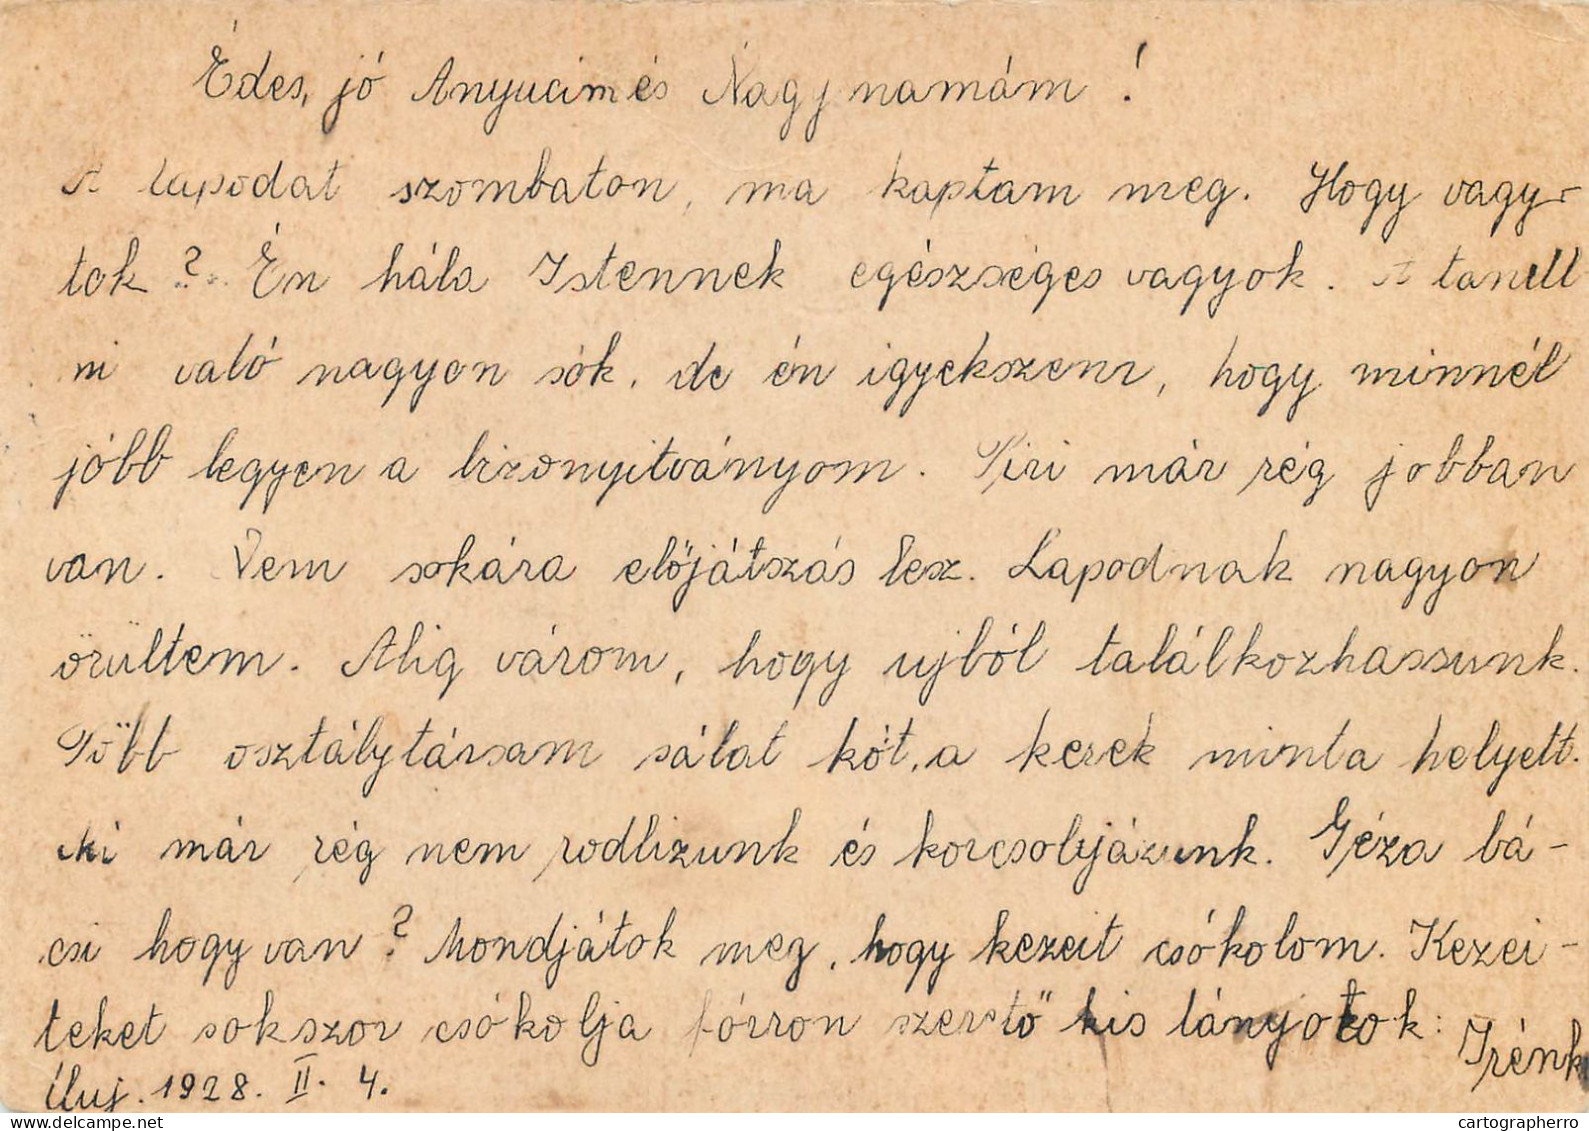 Édes, jó Anyucim és Nagynamám!
A lapodat szombaton, ma kaptam meg. Hogy vagy-
tok? Én hála Istennek egészséges vagyok. A tanul
ni való nagyon sók, de én igyekszem, hogy minnél
jóbb legyen a bizonyitványom. Piri már rég jobban
van. Nem sokára előjátszás lesz. Lapodnak nagyon
örültem. Alig várom, hogy ujból találkozhassunk.
Több osztálytársam sálat köt, a kerek minta helyett.
Mi már rég nem rodlizunk és korcsolyjázunk. Géza bá-
csi hogy van? Mondjátok meg, hogy kezeit csókolom. Kezei-
teket sokszor csókolja fórron szerető kis lányotok:
Irénk
Cluj. 1928. II. 4.
cartographerro